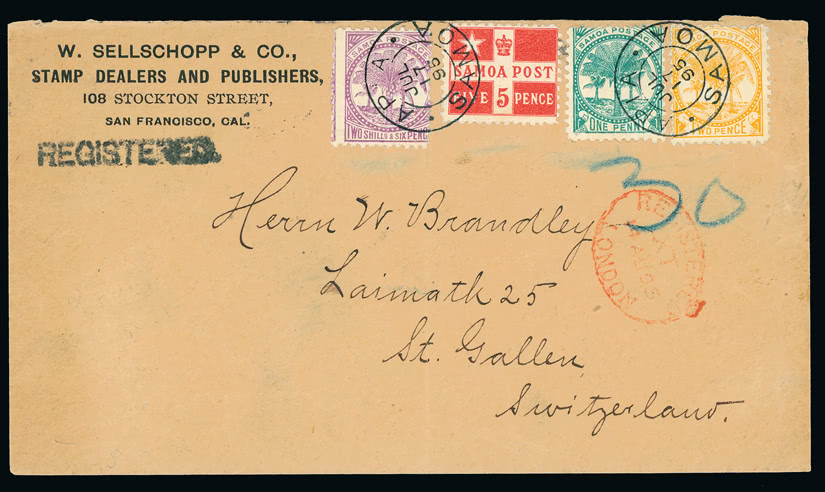 W. SELLSCHOPP & CO.,
STAMP DEALERS AND PUBLISHERS,
108 STOCKTON STREET,
SAN FRANCISCO, CAL.
REGISTERED.
SAMOA POSTAGE
TWO SHILLS & SIX PENCE
SAMOA POST
FIVE 5 PENCE
SAMOA POSTAGE
ONE PENNY
POSTAGE
TWO PENCE
APIA SAMOA
JUL
95
APIA SAMOA
JUL
95
30
REGISTERED
LONDON
AU 95
Herrn W. Brandley
Laimath 25
St. Gallen
Switzerland.